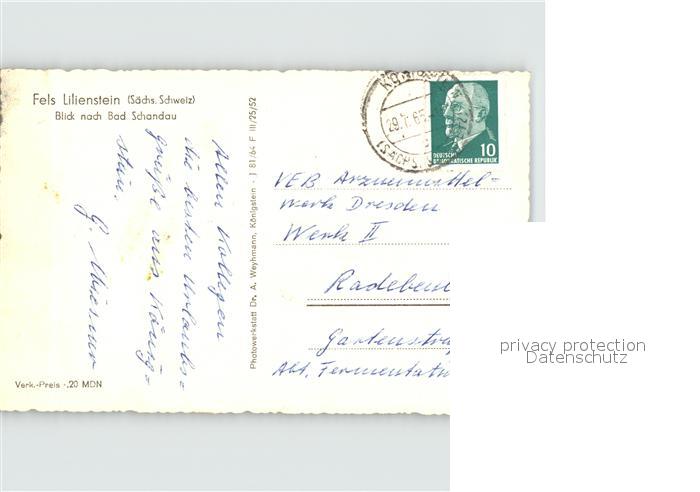 Fels Lilienstein (Sächs. Schweiz)
Blick nach Bad Schandau
Allen Kollegen
die besten Urlaubs-
grüße aus König-
stein.
G.
Verk.-Preis -,20 MDN
Photowerkstatt Dr. A. Weyhmann, Königstein - J 81/64 F III/25/52
29.7.65
(SÄCHS.
10
DEUTSCHE
DEMOKRATISCHE REPUBLIK
VEB Arzneimittel-
werk Dresden
Werk II
Radebeu
Gartenstra
Abt. Fermentatio
privacy protection
Datenschutz